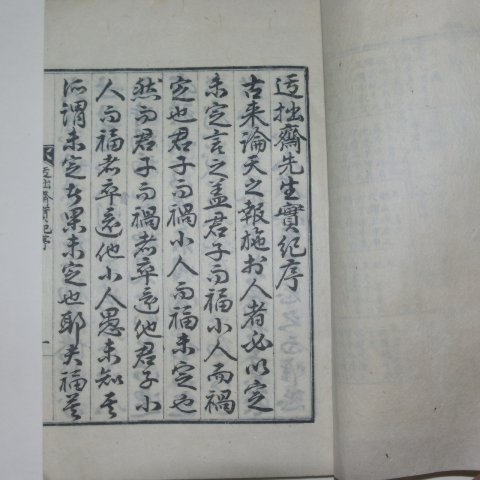 迃拙齋先生實紀序
古来論天之報施扵人者必以定
未定言之盖君子而福小人而禍
定也君子而禍小人而福未定也
然而君子而禍者卒還他君子小
人而福者卒還他小人愚未知其
所謂未定者果未定也耶夫福善
迃拙齋實紀序
一